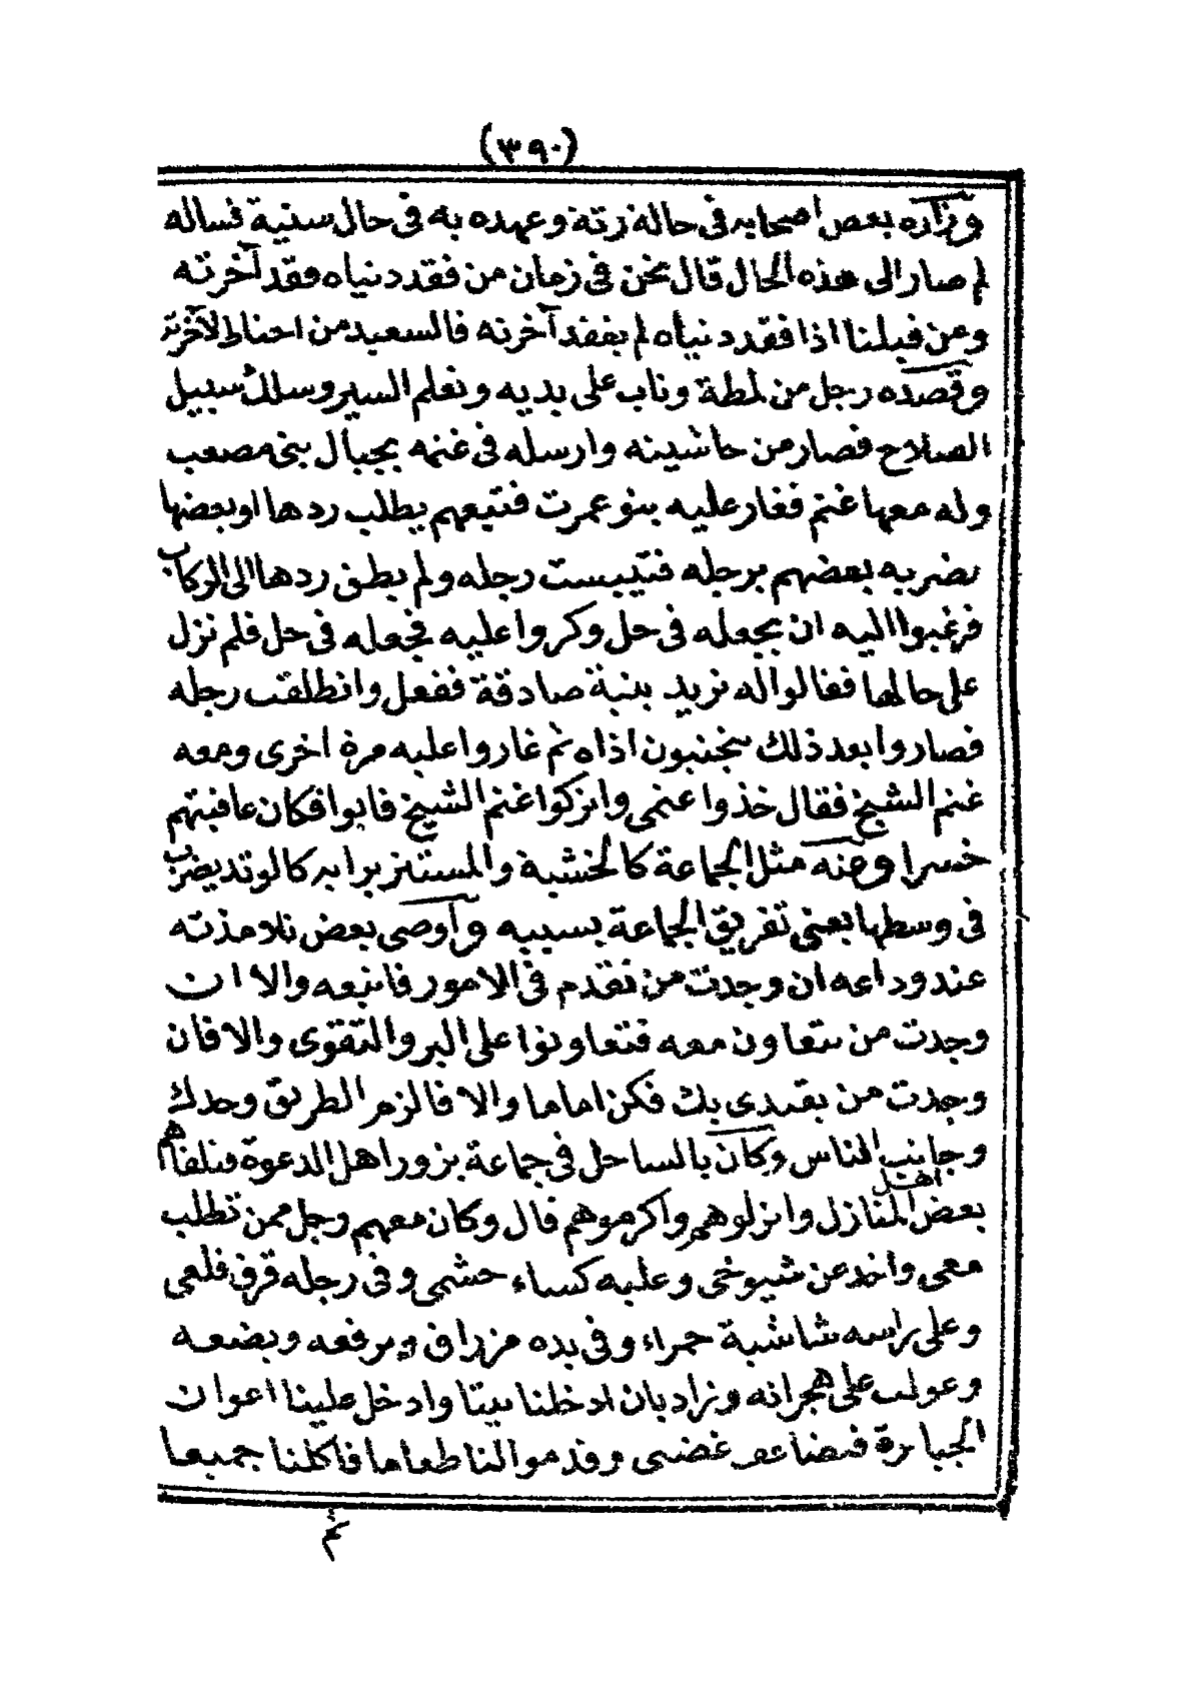 (٣٩٠)
وزاره بعض اصحابه في حالة رثة وعهده به في حال سنية فساله
لم صار الى هذه الحال قال نحن في زمان من فقد دنياه فقد آخرته
ومن قبلنا اذا فقد دنياه لم يفقد آخرته فالسعيد من احتاط لآخرته
وقصده رجل من لمطة وتاب على يديه وتعلم السير وسلك سبيل
الصلاح فصار من حاشيته وارسله في غنمه بجبال بني مصعب
وله معها غنم فغار عليه بنو عمرت فتبعهم يطلب ردها او بعضها
فضربه بعضهم برجله فتيبست رجله ولم يطق ردها الى الركاب
فرغبوا اليه ان يجعله في حل وكروا عليه فجعله في حل فلم تزل
على حالها فقالوا له نريد بنية صادقة ففعل وانطلقت رجله
فصاروا بعد ذلك يتجنبون اذاه ثم غاروا عليه مرة اخرى ومعه
غنم الشيخ فقال خذوا غنمي واتركوا غنم الشيخ فابوا فكان عاقبتهم
خسرا وعنه مثل الجماعة كالخشبة والمستنز برايه كالوتد يضرب
في وسطها يعني تفريق الجماعة بسببه وأوصى بعض تلامذته
عند وداعه ان وجدت من تقدم في الامور فاتبعه والا ان
وجدت من يتعاون معه فتعاونوا على البر والتقوى والا فان
وجدت من يقتدى بك فكن اماما والا فالزم الطريق وحدك
وجانب الناس وكان بالساحل في جماعة يزور اهل الدعوة فتلقاهم
اهل
بعض المنازل وانزلوهم واكرموهم قال وكان معهم رجل ممن تطلب
معي واخذ عن شيوخي وعليه كساء حشمي وفي رجله قرق فلعي
وعلى راسه شاشية حمراء وفي يده مزراق ويرفعه ويضعه
وعولت على هجرانه وزاد بان ادخلنا بيتا وادخل علينا اعوان
الجبابرة فتضاعف غضبي وقدموا لنا طعاما فاكلنا جميعا
ثم